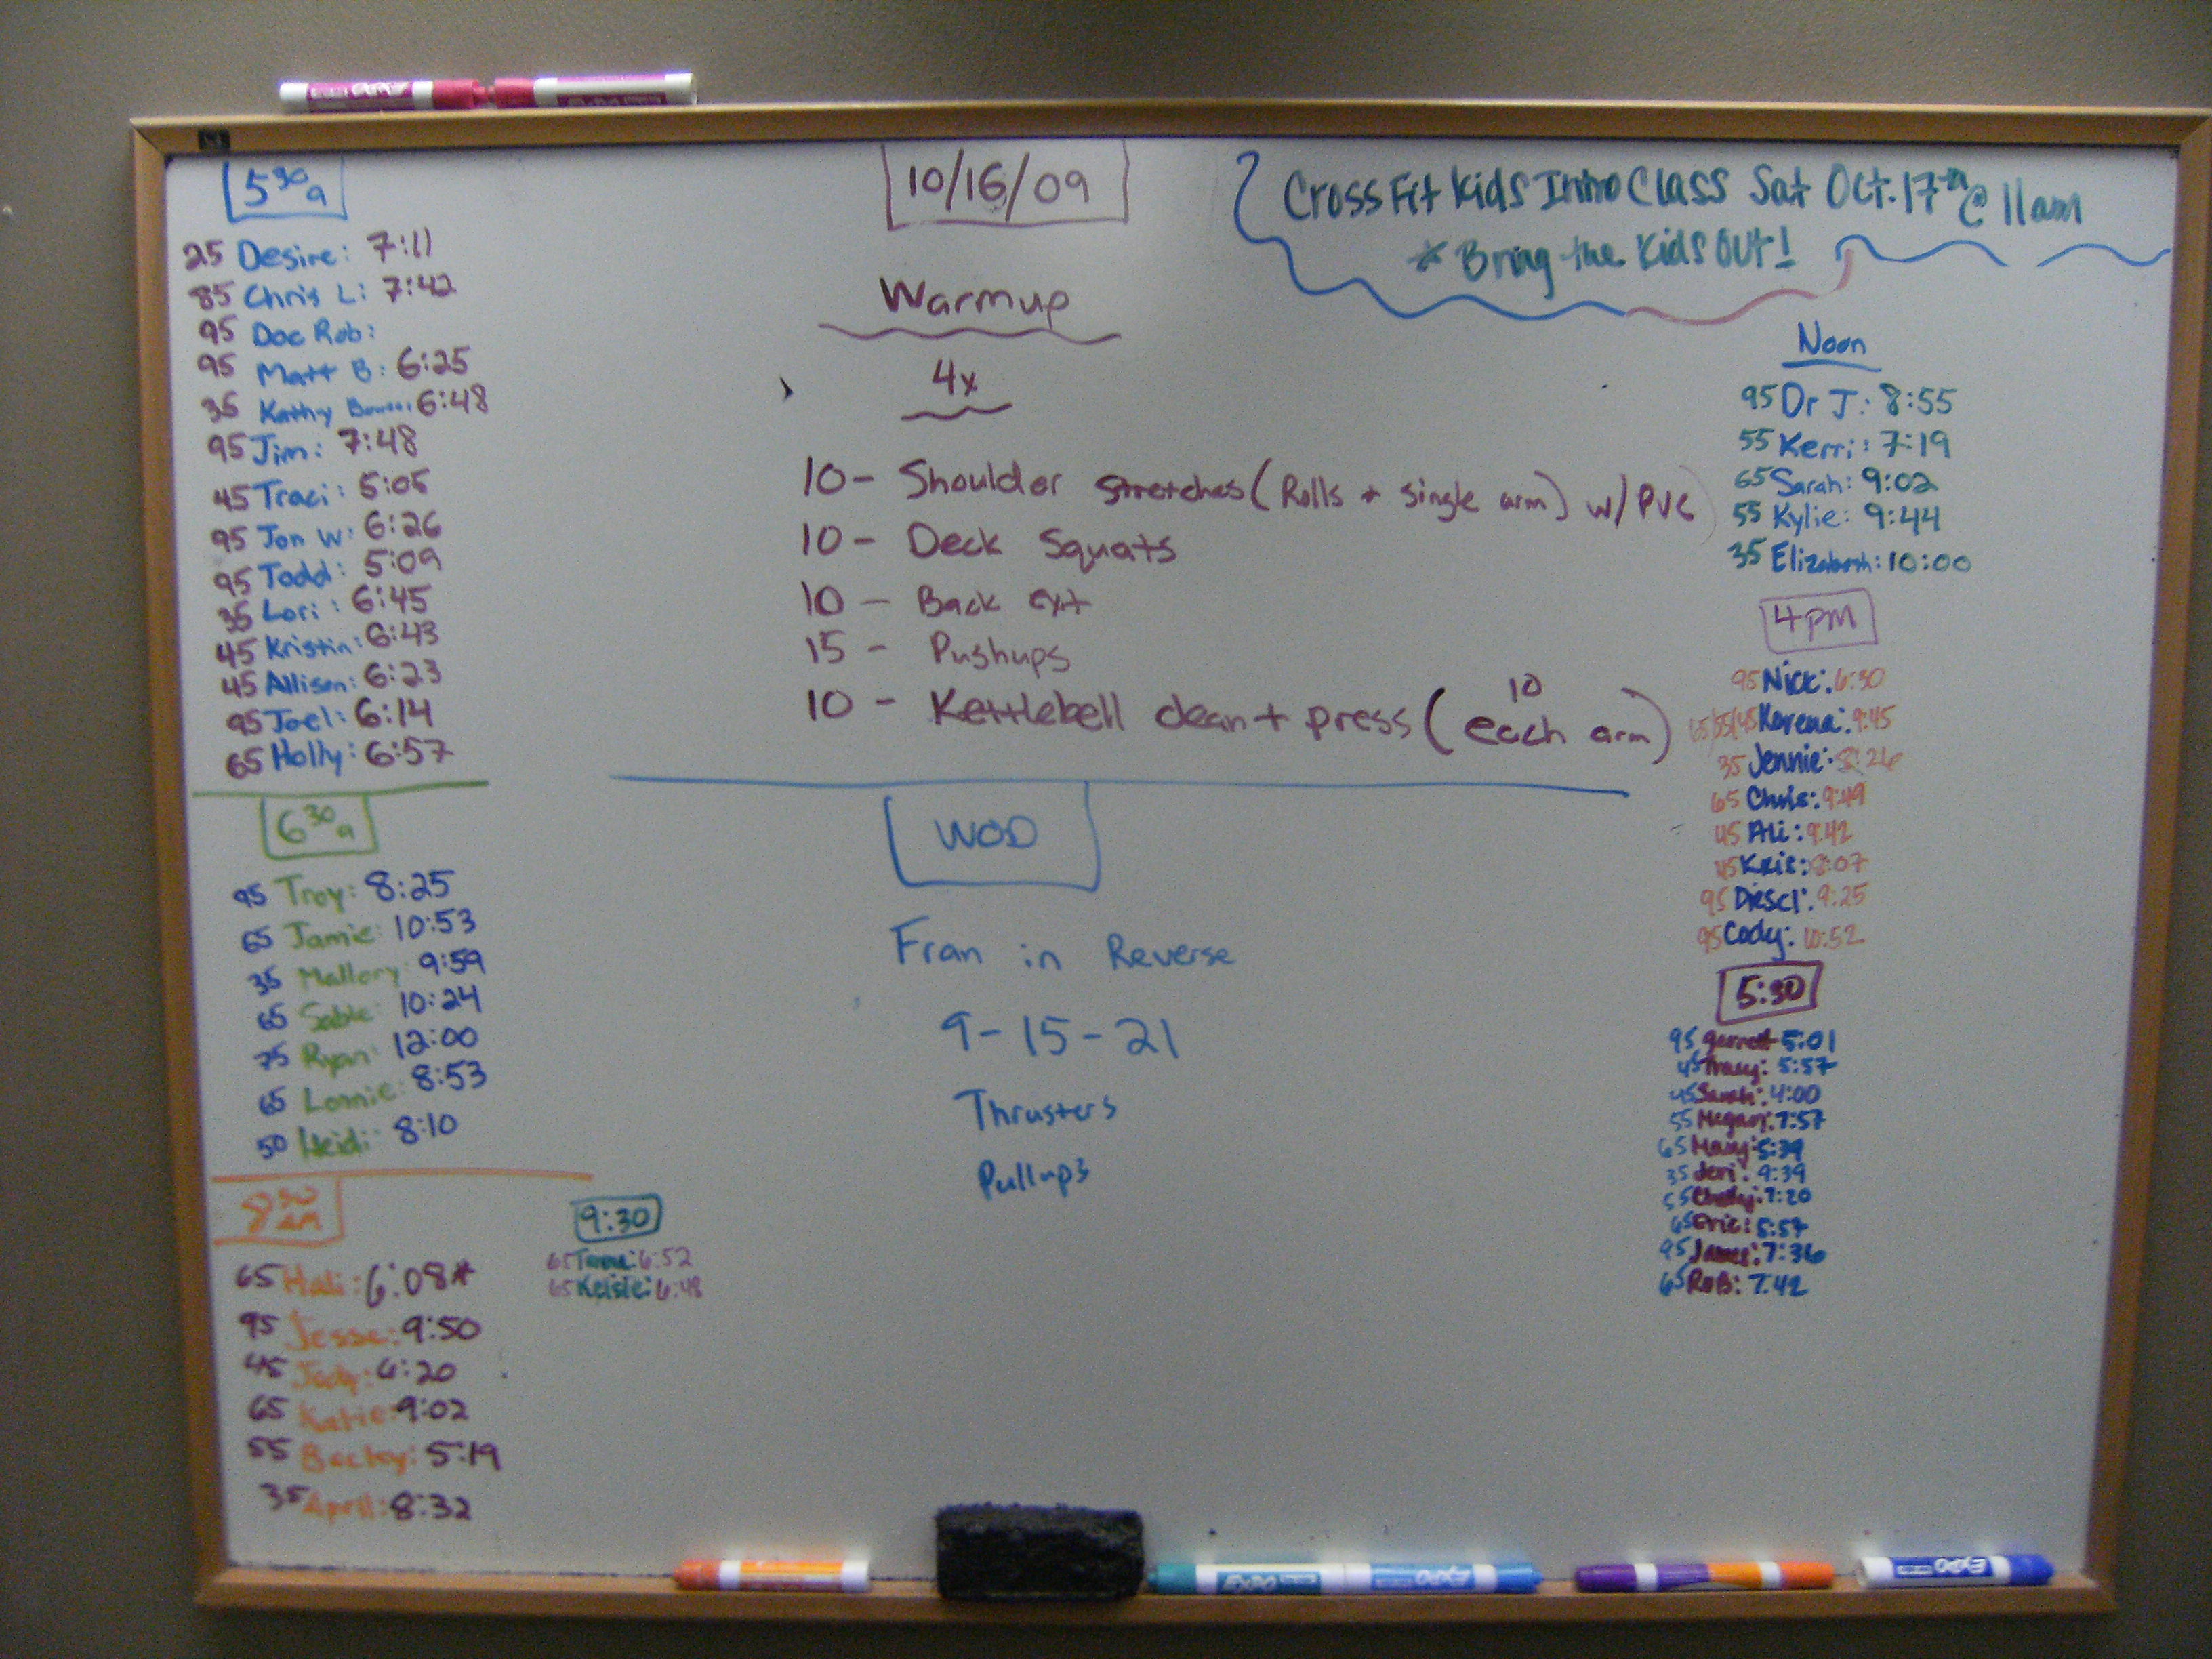 5 30 a
25 Desire: 7:11
85 Chris L: 7:42
95 Doc Rob:
95 Matt B: 6:25
35 Kathy 6:48
95 Jim: 7:48
45 Traci: 5:05
95 Jon W: 6:26
95 Todd: 5:09
35 Lori: 6:45
45 Kristin: 6:43
45 Allison: 6:23
95 Joel: 6:14
65 Holly: 6:57
6 30 a
95 Troy: 8:25
65 Jamie: 10:53
35 Mallory: 9:59
65 Sable: 10:24
75 Ryan: 12:00
65 Lonnie: 8:53
50 Heidi: 8:10
8 30 am
65 Hali: 6:08*
95 Jesse: 9:50
45 Jody: 6:20
65 Katie: 9:02
55 Becky: 5:19
35 April: 8:32
9:30
65 6:52
65 Kelsie: 6:48
10/16/09
Warmup
4x
10 - Shoulder stretches (Rolls + single arm) w/ PVC
10 - Deck Squats
10 - Back ext
15 - Pushups
10 - Kettlebell clean + press (10 each arm)
WOD
Fran in Reverse
9-15-21
Thrusters
Pullups
CrossFit Kids Intro Class Sat Oct. 17th @ 11am
* Bring the Kids OUT!
Noon
95 Dr J: 8:55
55 Kerri: 7:19
65 Sarah: 9:02
55 Kylie: 9:44
35 Elizabeth: 10:00
4pm
95 Nick: 6:30
65/55/45 Korena: 9:45
35 Jennie: 8:26
65 Chris: 9:49
45 Ali: 9:42
45 Kris: 8:07
95 Diesel: 9:25
95 Cody: 10:52
5:30
95 Garrett 5:01
45 Tracy: 5:57
45 Sarah: 4:00
55 Megan: 7:57
65 5:39
35 Jeri: 9:39
55 7:20
65 Eric: 5:57
95 James: 7:36
65 RoB: 7:42
EXPO
EXPO
EXPO